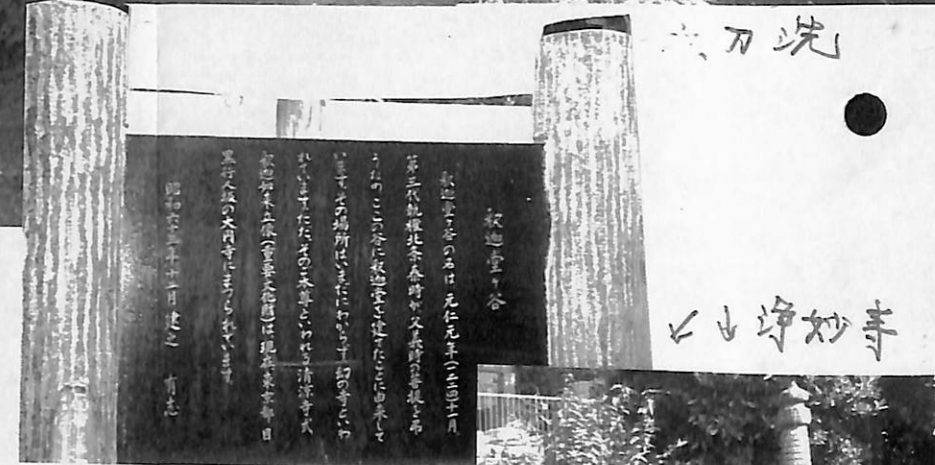 釈迦堂ヶ谷
釈迦堂ヶ谷の名は 元仁元年(一二二四)十一月
第三代執権北条泰時が父義時の菩提を弔
うため ここの谷に釈迦堂を建てたことに由来して
います。その場所はいまだにわからず 幻の寺といわ
れています。ただ、その本尊といわれる清凉寺式
釈迦如来立像(重要文化財)は現在東京都 目
黒行人坂の大円寺にまつられています。
年十一月建之 有志
刀洗
浄妙寺